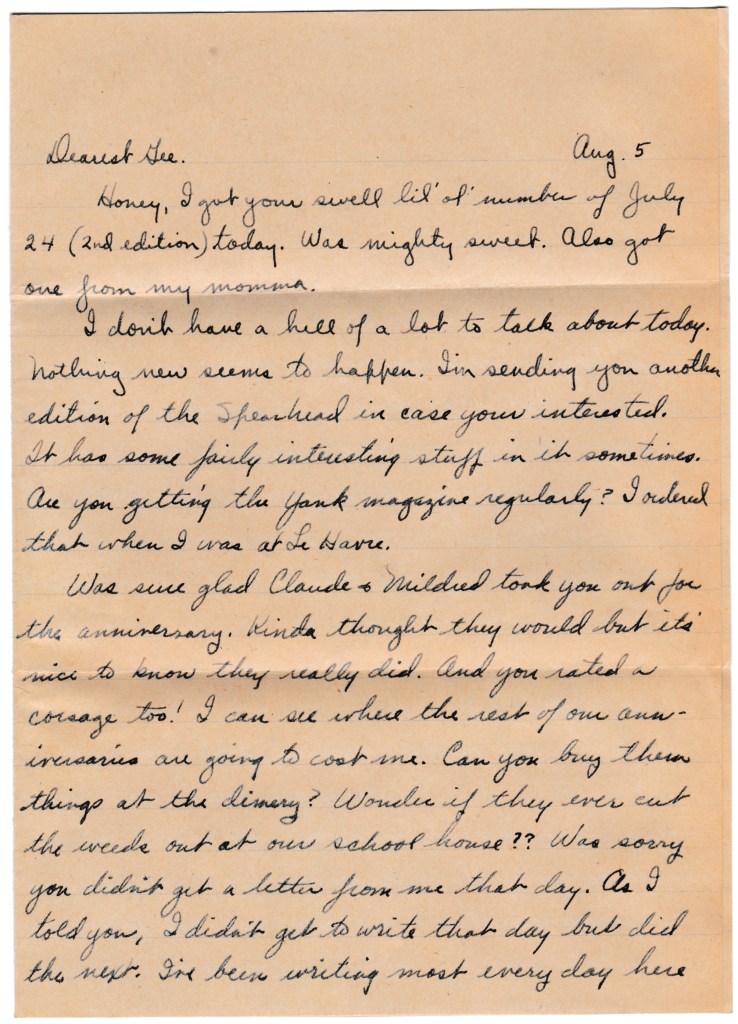 Dearest Gee. Aug. 5
Honey, I got your swell lil' ol' number of July
24 (2nd edition) today. Was mighty sweet. Also got
one from my momma.
I don't have a hell of a lot to talk about today.
Nothing new seems to happen. I'm sending you another
edition of the Spearhead in case your interested.
It has some fairly interesting stuff in it sometimes.
Are you getting the Yank magazine regularly? I ordered
that when I was at Le Havre.
Was sure glad Claude & Mildred took you out for
the anniversary. Kinda thought they would but it's
nice to know they really did. And you rated a
corsage too! I can see where the rest of our ann-
iversaries are going to cost me. Can you buy them
things at the dimery? Wonder if they ever cut
the weeds out at our school house?? Was sorry
you didn't get a letter from me that day. As I
told you, I didn't get to write that day but did
the next. I've been writing most every day here